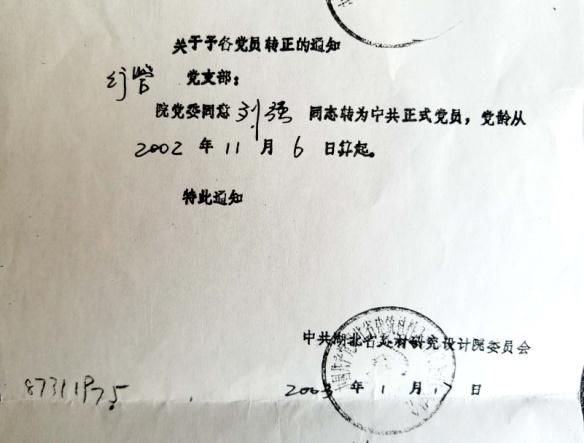 关于予备党员转正的通知
行管 党支部：
院党委同意 刘强 同志转为中共正式党员，党龄从
2002 年 11 月 6 日算起。
特此通知
中共湖北省建材研究设计院委员会
2003 年 1 月 17 日
87311975